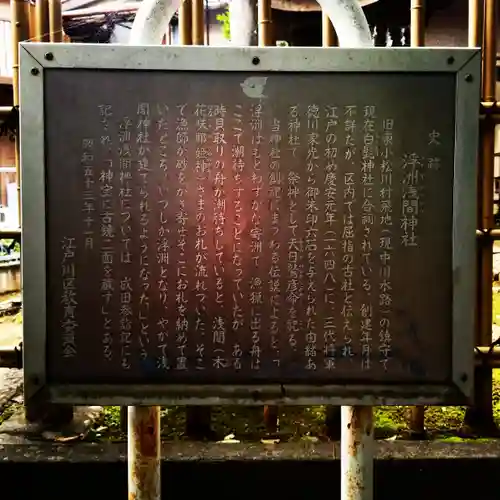 史跡
浮洲浅間神社
旧東小松川村飛地(現中川水路)の鎮守で
現在白髭神社に合祀されている。創建年月は
不詳だが、区内では屈指の古社と伝えられ
江戸の初め慶安元年(一六四八)に、三代将軍
徳川家光から御朱印六石を与えられた由緒あ
る神社で、祭神として天日鷲彦命を祀る。
当神社の創祀にまつわる伝説によると、「
浮洲はもとわずかな寄洲で、漁猟に出る舟は
ここで潮待ちすることになっていたが、ある
時貝取りの舟が潮待ちしていると、浅間(木
花咲耶姫神)さまのお札が流れついた。そこ
で漁師が砂をかき寄せそこにお札を納めて置
いたところ、いつしか浮洲となり、やがて浅
間神社が建てられるようになった。」という
浮洲浅間神社については、成田参詣記にも
記され、「神空に古鏡二面を蔵す」とある。
昭和五十三年十一月
江戸川区教育委員会